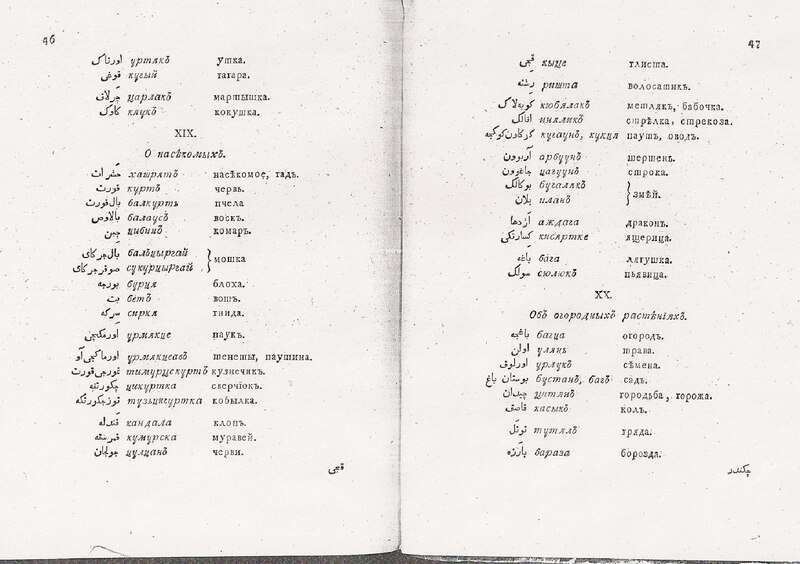 46
اورناك уртякъ ушка.
قوغى кугый гагара.
چرلاق царлакъ мартышка.
كاوك клукъ кокушка.
XIX.
О насѣкомыхъ.
حشرات хашрятъ насѣкомое, гадъ.
قورت куртъ червь.
بال قورت балкуртъ пчела
بالاوص балаусъ воскъ.
چبن цибинъ комаръ.
بال جركاى бальцыргай
صوقر جركاى сукурцыргай } мошка
بورچه бурця блоха.
بت бетъ вошь.
سركه сиркя гнида.
اورمكچى урмякце паукъ.
اورماكچى آو урмякцеавъ тенеты, паушина.
تمورجى قورت тимурцекуртъ кузнечикъ.
چكورتکه цикуртка сверчіокъ.
توزچكورتکه тузьцикуртка кобылка.
قندله кандала клопъ.
قمرسقه кумурска муравей.
چولچان цулцанъ черви.
قچى
47
قچى кыце глиста.
رشته ришта волосатикъ.
كوبه لاك кюбялакъ метлякъ, бабочка.
انالك иняликъ стрѣлка, стрекоза.
кугаунъ, кукця паутъ, оводъ.
آربوون арбуунъ шершень.
جاغوون цагуунъ строка.
بوكالك бугалякъ
يلان иланъ } змѣй.
آژدها аждага драконъ.
كسارتكى кисяртке ящерица.
باغه бага лягушка.
سولك сюлюкъ пьявица.
XX.
Объ огородныхъ растѣніяхъ.
باغچه багца огородъ.
اولن улянь трава.
اورلوق урлукъ сѣмена.
بوستان باغ бустанъ, багъ садъ.
چيتان цитянъ городьба, горожа.
قاصق касыкъ колъ.
توتل тутялъ гряда.
بارازه бараза борозда.
چكندر